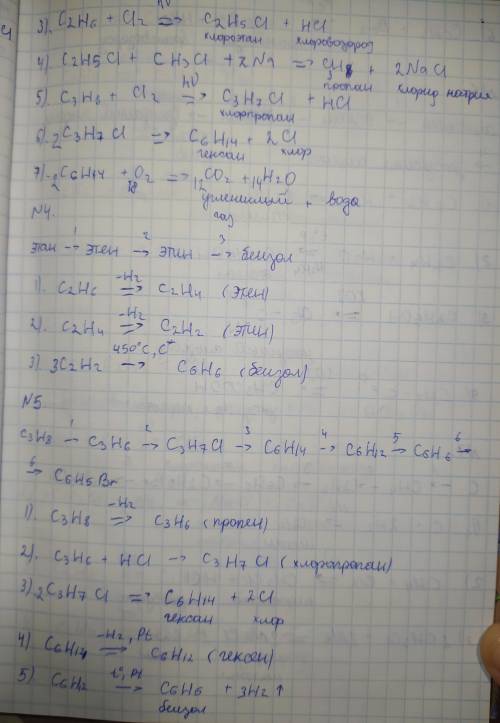 3). C2H6 + Cl2 hν => C2H5Cl + HCl
хлорэтан хлороводород
4) C2H5Cl + CH3Cl + 2Na => + 2NaCl
пропан хлорид натрия
5) C3H8 + Cl2 hν => C3H7Cl + HCl
хлорпропан
6). 2C3H7Cl => C6H14 + 2Cl
гексан хлор
7). 2C6H14 + O2 => 12CO2 + 14H2O
19
углекислый + вода
газ
N4.
этан 1→ этен 2→ этин 3→ бензол
1). C2H6 -H2 => C2H4 (этен)
2). C2H4 -H2 => C2H2 (этин)
3) 3C2H2 450°C, C+ → C6H6 (бензол)
N5
C3H8 1→ C3H6 2→ C3H7Cl 3→ C6H14 4→ C6H12 5→ C6H6 6→
6→ C6H5Br
1). C3H8 -H2 => C3H6 (пропен)
2). C3H6 + HCl → C3H7Cl (хлорпропан)
3) 2C3H7Cl => C6H14 + 2Cl
гексан хлор
4) C6H14 -H2, Pt => C6H12 (гексен)
5) C6H12 t°, Pt → C6H6 + 3H2↑
бензол